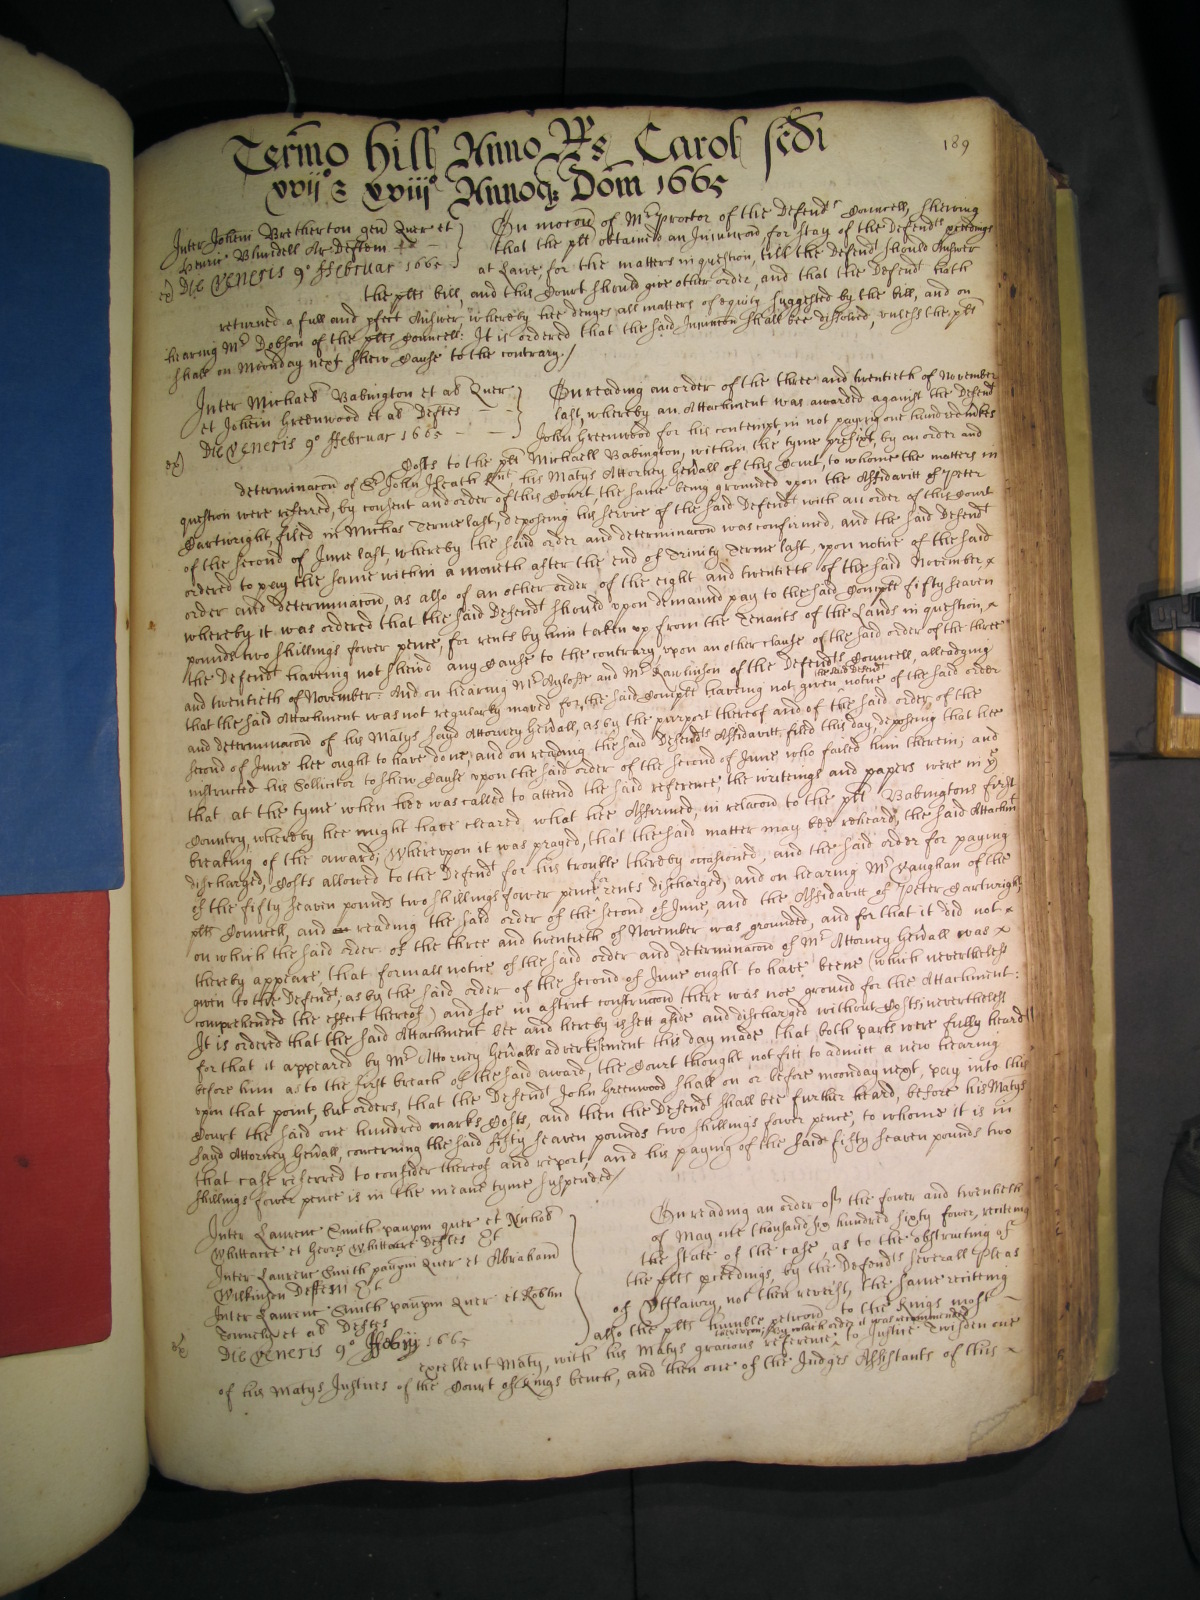 189
Termo Hill Anno RRs Caroli scdi
xvii° & xviii° Annoq, Dom 1665
Inter Johem Bretherton gen Quer et
Henric Blundell Ar Deftem
ex) Die Veneris 9° Februar 1665
On mocon of Mr Proctor of the Defendts Councell, shewing
that the plt obtained an Injuncon for stay of the Defendts pceedings
at Lawe, for the matters in question, till the Defendt should Answer
the plts bill, and this Court should give other order, and that the Defendt hath
returned a full and pfect Answer whereby hee denyes all matters of equity suggested by the bill, and on
hearing Mr Dobson of the plts Councell: It is ordered that the said Injuncon shall bee dissolved, unless the plt
shall on Moonday next shew Cause to the contrary./
Inter Michael Babington et al Quer
et Johem Greenwood et al Deftes
ex) Die Veneris 9° Februar 1665
On reading an order of the three and twentieth of November
last, whereby an Attachment was awarded against the Defendt
John Greenwood for his contempt, in not paying one hundred mkes
Costs to the plt Michaell Babington, within the tyme prefixt, by an order and
determinacon of Sr John Heath Knt his Matys Attorney Genall of this Court, to whome the matters in
question were referred, by consent and order of this Court the same being grounded upon the Affidavitt of Peter
Cartwright, filed in Michas Terme last, deposing his service of the said Defendt with an order of this Court
of the second of June last, whereby the said order and determinacon was confirmed, and the said Defendt
ordered to pay the same within a moneth after the end of Trinity Terme last, upon notice of the said
order and determinacon, as also of an other order of the eight and twentieth of the said November x
whereby it was ordered that the said Defendt should upon demaund pay to the said Complt fifty seaven
pounds two shillings fower pence, for rents by him taken up from the Tenants of the Lands in question, x
the Defendt haveing not shewd any Cause to the contrary upon an other clause of the said order of the three
and twentieth of November: And on hearing Mr Ayloffe and Mr Rawlinson of the Defendts Councell, alleadging
that the said Attachment was not regularly moved for, the said Complt haveing not given the said Defendt notice of the said order
and determinacon of his Matys sayd Attorney Genall, as by the purport thereof and of the said order of the
second of June hee ought to have done, and on reading the said Defendts Affidavitt, filed this day, deposing that hee
instructed his Sollicitor to shew Cause upon the said order of the second of June, who failed him therein; and
that at the tyme when hee was called to attend the said reference, the writeings and papers were in ye
Country, whereby hee might have cleared what hee Affirmed, in relacon to the plt Babingtons first
breaking of the award, Whereupon it was prayed, that the said matter may bee reheard, the said Attachmt
discharged, Costs allowed to the Defendt for his trouble thereby occasioned, and the said order for paying
of the fifty seaven pounds two shillings fower pence for rents discharged; and on hearing Mr Vaughan of the
plts Councell, and reading the said order of the second of June, and the Affidavitt of Peter Cartwright,
on which the said order of the three and twentieth of November was grounded, and for that it did not x
thereby appeare, that formall notice of the said order and determinacon of Mr Attorney Genall was x
given to the Defendt, as by the said order of the second of June ought to have beene (which nevertheless
comprehended the effect thereof) and soe in a strict construccon there was noe ground for the Attachment:
It is ordered that the said Attachment bee and hereby is sett aside and discharged without Costs; nevertheless
for that it appeared by Mr Attorney Genalls advertisement this day made that both parts were fully heard
before him as to the first breach of the said award, the Court thought not fitt to admitt a new hearing
upon that point, but orders, that the Defendt John Greenwood shall on or before moonday next, pay into this
Court the said one hundred marks Costs, and then the Defendt shall bee further heard, before his Matys
sayd Attorney Genall, concerning the said fifty seaven pounds two shillings fower pence, to whome it is in
that case referred to consider thereof and report, and his paying of the said fifty seaven pounds two
shillings fower pence is in the meane tyme suspended/
Inter Laurenc Smith paupem quer et Nichol
Whittacre et Georg Whittacre Deftes Et
Inter Laurenc Smith paupem Quer et Abraham
Wilkinson Deftem Et
Inter Laurenc Smith paupem Quer et
Towneley et al Deftes
ex) Die Veneris 9° Febrij 1665
On reading an order of the fower and twentieth
of May one thousand six hundred sixty fower, reciteing
the state of the case, as to the obstructing of
the plts pceedings, by the Defendts severall Pleas
of Utlawry, not then reverst, the same reciteing
also the plts humble peticon to the Kings most
excellent Maty, with his Matys gracious reference whereupon, by which order it was recommended to Justice Twisden one
of his Matys Justices of the Court of Kings bench, and then one of the Judges Assistants of this x